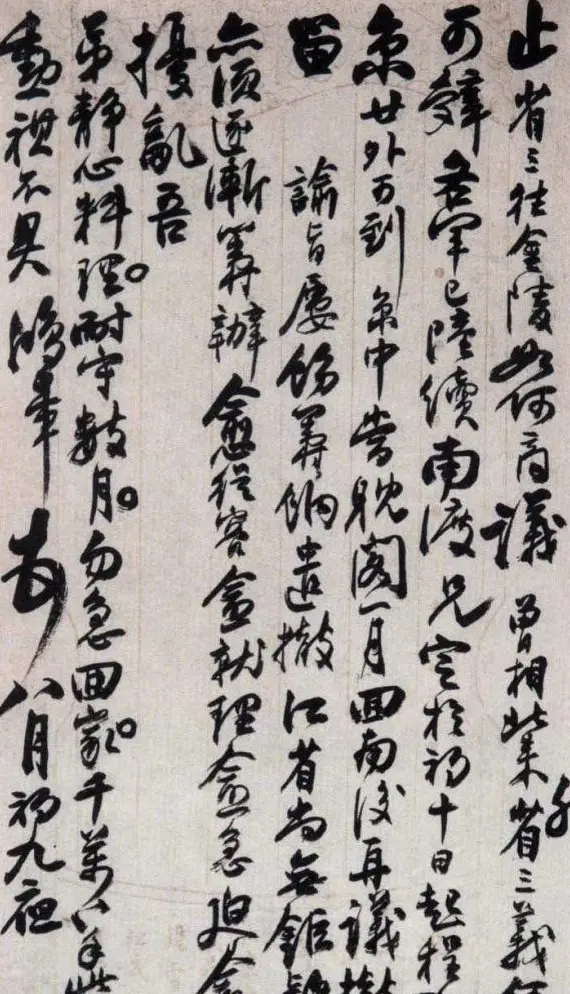 止省三往金陵如何商議曾相此来省三義
可辭各軍已陸續南渡兄定於初十日起程
京廿外可到京中當耽閣一月回南後再議
留
諭旨屢飭籌餉遣撤江省尚無鉅
亦須逐漸籌辦愈從容愈就理愈急迫愈
擾亂吾
弟靜心料理耐守數月勿急回家千萬
勳祺不具鴻章頓八月初九夜